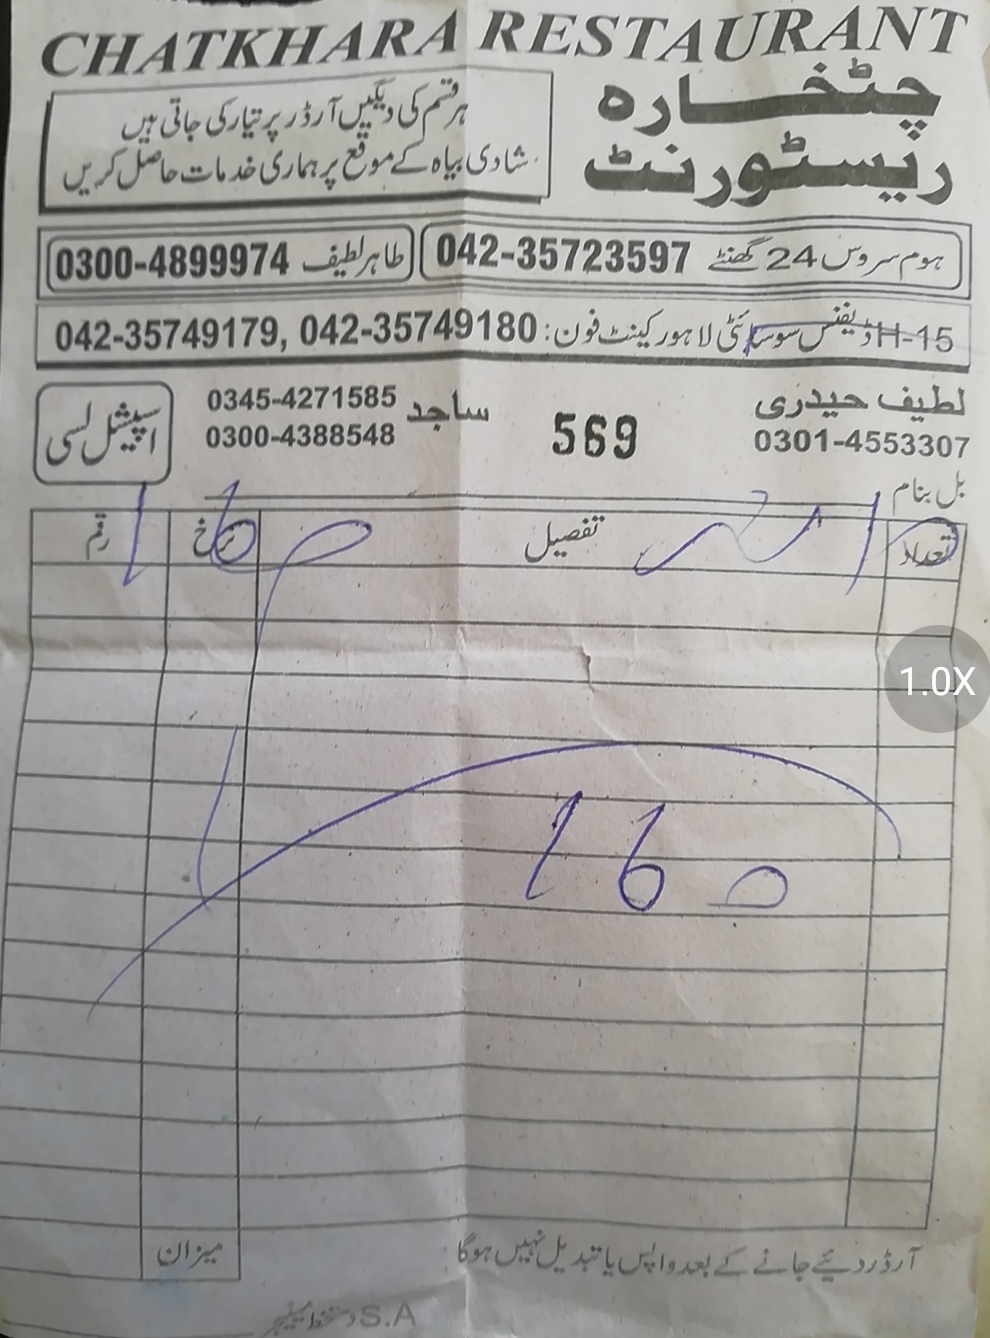 CHATKHARA RESTAURANT
چٹخارہ
ریسٹورنٹ
ہر قسم کی دیگیں آرڈر پر تیار کی جاتی ہیں
شادی بیاہ کے موقع پر ہماری خدمات حاصل کریں
ہوم سروس 24 گھنٹے 042-35723597
طاہر لطیف 0300-4899974
15-H ڈیفنس سوسائٹی لاہور کینٹ فون: 042-35749180 ,042-35749179
لطیف حیدری
0301-4553307
569
ساجد 0345-4271585
0300-4388548
اسپیشل لسی
بل بنام
تعداد تفصیل نرخ رقم
160
1.0X
160
میزان
آرڈر دیئے جانے کے بعد واپس یا تبدیل نہیں ہوگا
S.A دستخط مینیجر